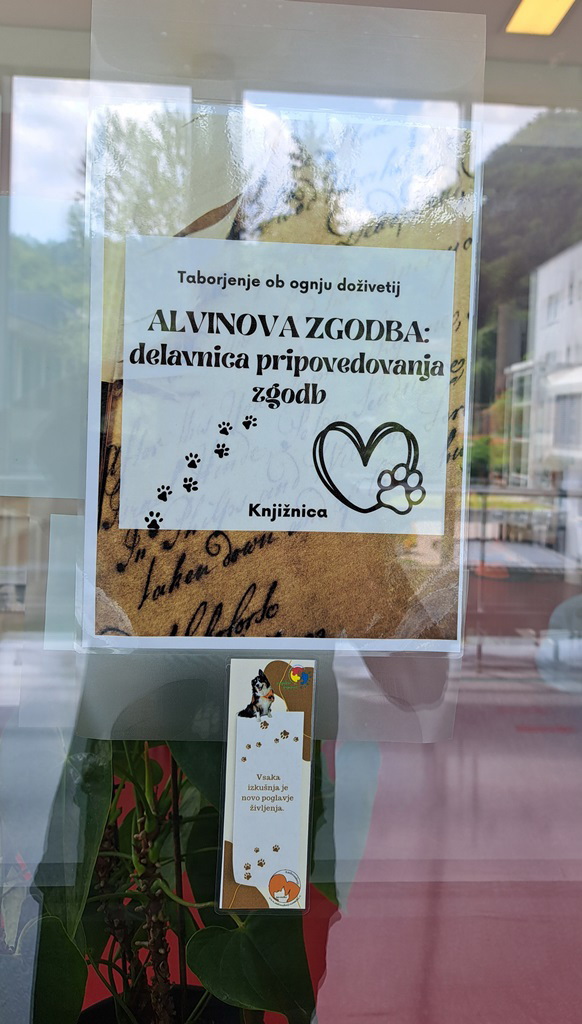 Taborjenje ob ognju doživetij
ALVINOVA ZGODBA:
delavnica pripovedovanja
zgodb
Knjižnica
taken down
Vsaka
izkušnja je
novo poglavje
življenja.